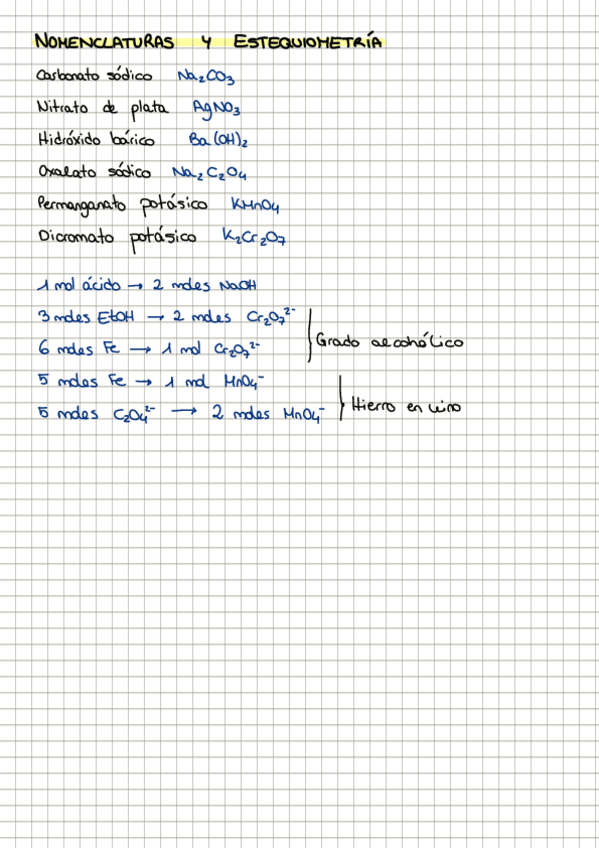 NOMENCLATURAS Y ESTEQUIOMETRÍA
Carbonato sódico Na₂CO₃
Nitrato de plata AgNO₃
Hidróxido bárico Ba(OH)₂
Oxalato sódico Na₂C₂O₄
Permanganato potásico KMnO₄
Dicromato potásico K₂Cr₂O₇
1 mol ácido → 2 moles NaOH
3 moles EtOH → 2 moles Cr₂O₇²⁻
Grado alcohólico
6 moles Fe → 1 mol Cr₂O₇²⁻
5 moles Fe → 1 mol MnO₄⁻
Hierro en vino
5 moles C₂O₄²⁻ → 2 moles MnO₄⁻